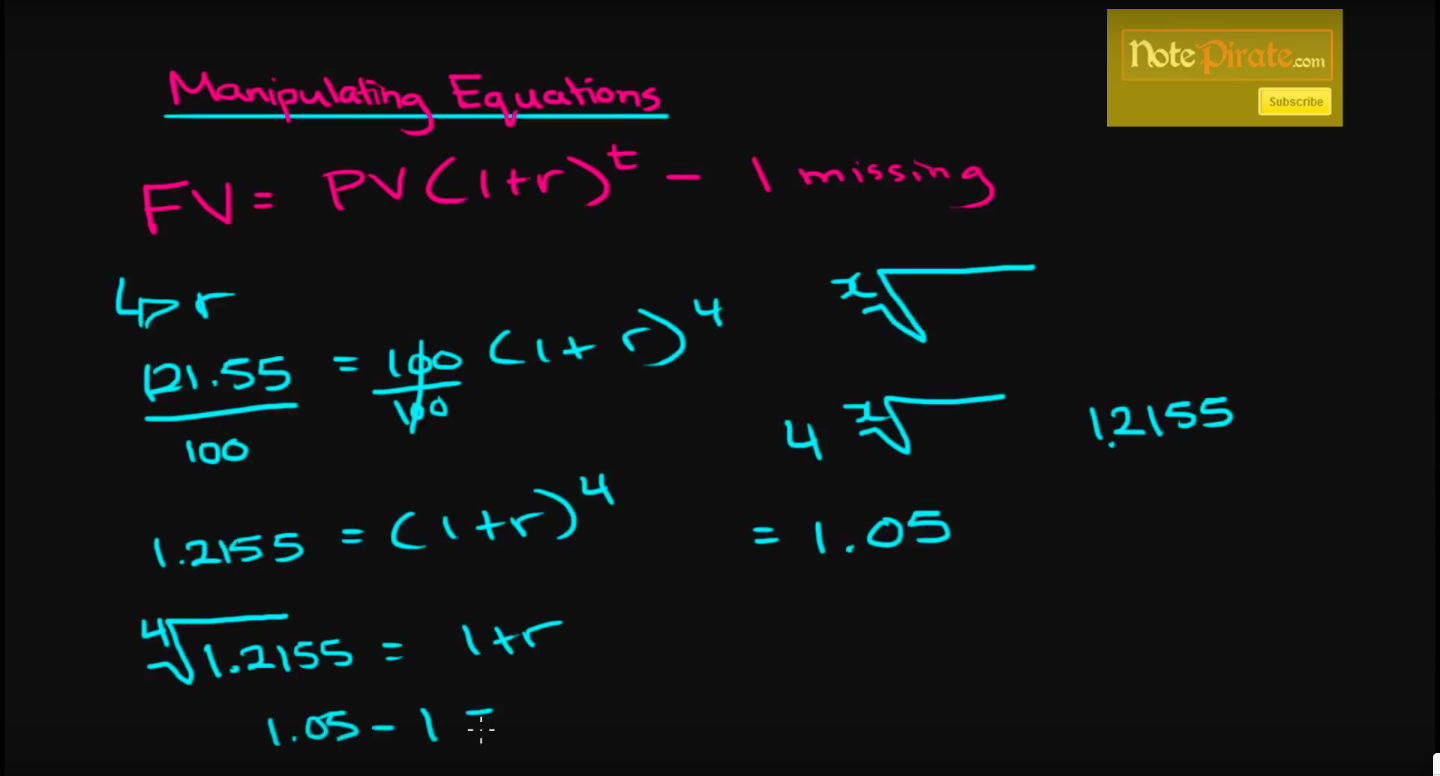 NotePirate.com
Subscribe
Manipulating Equations
FV = PV(1+r)^t - 1 missing
↳ r
121.55/100 = 100/100 (1+r)^4
1.2155 = (1+r)^4
⁴√1.2155 = 1+r
1.05 - 1 =
ˣ√
4 ˣ√ 1.2155
= 1.05